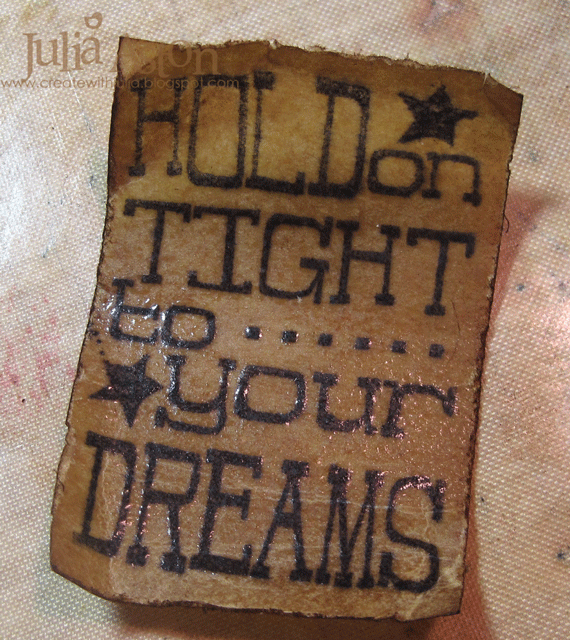 Julia
www.createwithjulia.blogspot.com
HOLD on
TIGHT
to ......
your
DREAMS